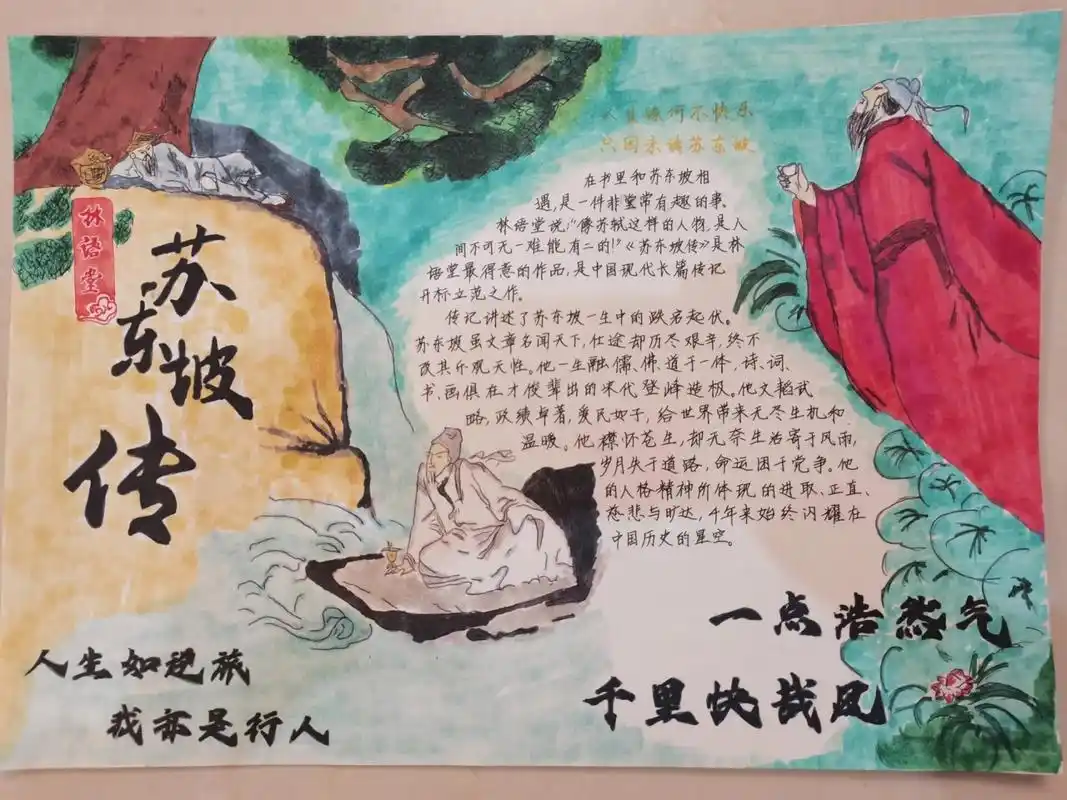 林语堂
苏东坡传
人生缘何不快乐
只因未读苏东坡
在书里和苏东坡相
遇,是一件非常有趣的事。
林语堂说:“像苏轼这样的人物,是人
间不可无一难能有二的!”《苏东坡传》是林
语堂最得意的作品,是中国现代长篇传记
开标立范之作。
传记讲述了苏东坡一生中的跌宕起伏。
苏东坡虽文章名闻天下,仕途却历尽艰辛,终不
改其乐观天性。他一生融儒、佛、道于一体,诗、词、
书、画俱在才俊辈出的宋代登峰造极。他文韬武
略,政绩卓著,爱民如子,给世界带来无尽生机和
温暖。他襟怀苍生,却无奈生活寄于风雨,
岁月失于道路,命运困于党争。他
的人格精神所体现的进取、正直、
慈悲与旷达,千年来始终闪耀在
中国历史的星空。
一点浩然气
千里快哉风
人生如逆旅
我亦是行人